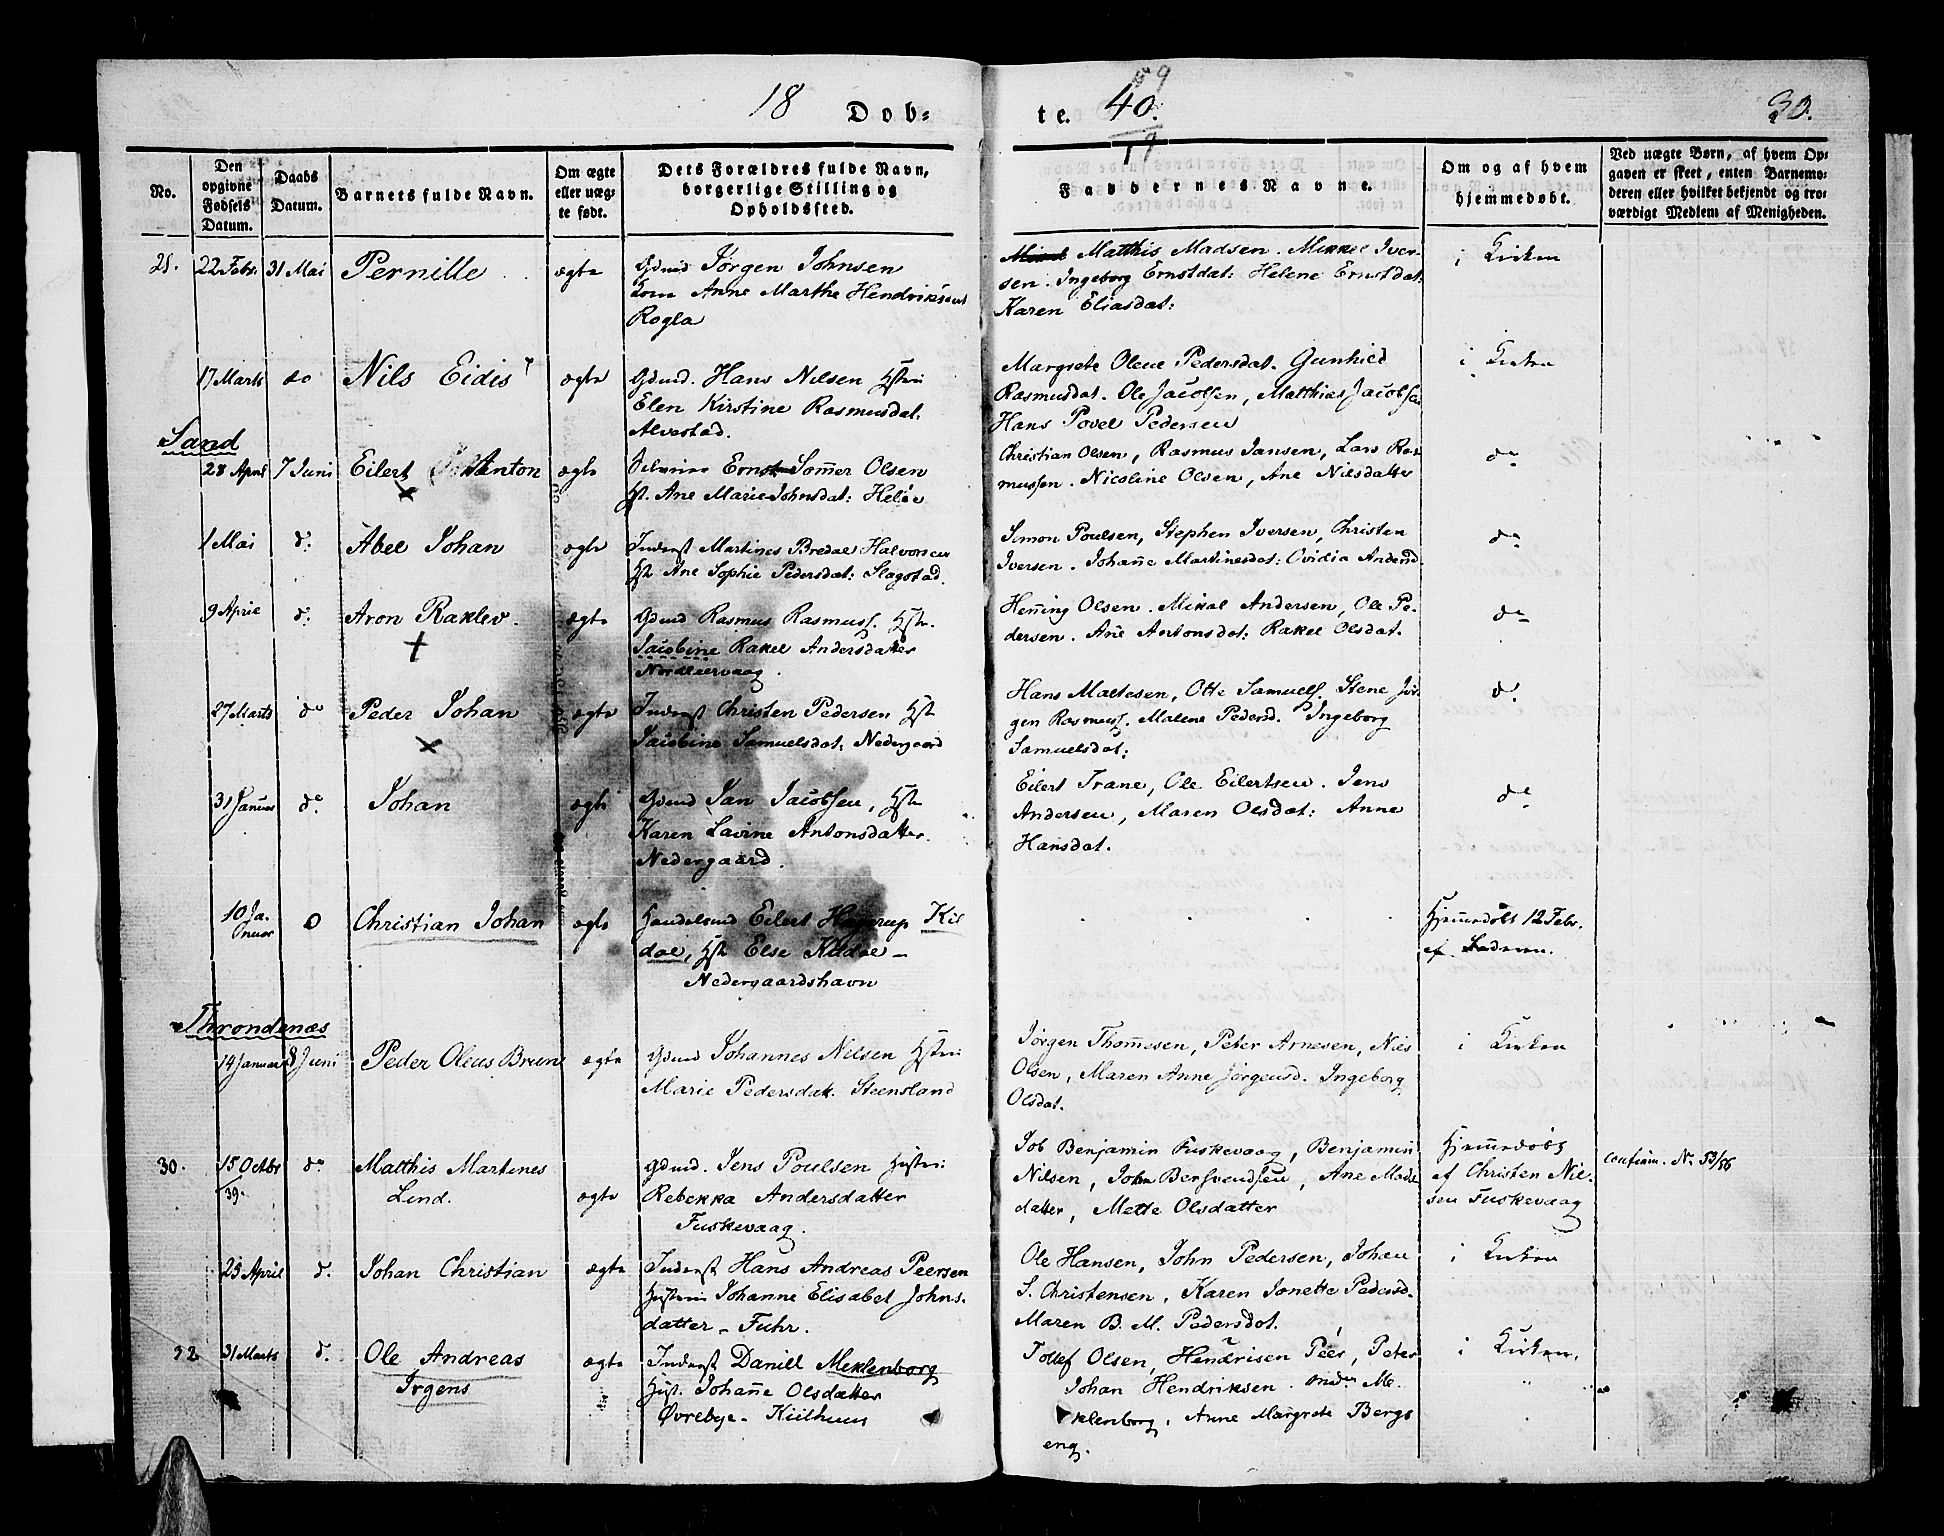 18 Dob=
te. 40.
59
19
30.
No.
Den
opgivne
Fødsels
Datum.
Daabs
Datum.
Barnets fulde Navn.
Om ægte
eller uæg-
te født.
Dets Forældres fulde Navn,
borgerlige Stilling og
Opholdssted.
Faddernes Navne.
Om og af hvem
hjemmedøbt.
Ved uægte Børn, af hvem Op-
gaven er skeet, enten Barnemo-
deren eller hvilket bekjendt og tro-
værdigt Medlem af Menigheden.
21. 22 Febr. 31 Mai Pernille ægte Gdmd Jørgen Johnsen
Kone Anne Marthe Hendriksdat
Rogla
Matthis Madsen. Mikkel Iver-
sen. Ingeborg Ernstdat: Helene Ernstdat:
Karen Eliasdat:
i Kirken
17 Marts do Nils Eidis ægte Gdmd. Hans Nilsen Hstru
Elen Kirstine Rasmusdat.
Alvestad.
Margrete Olene Pedersdat. Gunhild
Rasmusdat. Ole Jacobsen, Matthias Jacobsen
Hans Povel Pedersen
i Kirken
Sand
28 April 7 Juni Eilert Anton ægte Ernst Sommer Olsen
Hst. Ane Marie Johnsdat: Heløe
Christian Olsen, Rasmus Jansen, Lars Ras-
mussen. Nicoline Olsen, Ane Nilsdatter
do
1 Mai do: Abel Johan ægte Inderst Martines Bredal Halvorsen
Hst. Ane Sophie Pedersdat: Slagstad.
Simon Poulsen, Stephen Iversen, Christen
Iversen. Johanne Martinesdat: Ovidia Andersd.
do
9 April do: Aron Raklev. ægte Gdmd Rasmus Rasmuss. Hstr.
Jacobine Rakel Andersdatter
Nordleervaag.
Henning Olsen. Mikal Andersen, Ole Pe-
dersen. Ane Antonsdat: Rakel Olsdat.
do
27 Marts do Peder Johan ægte Inderst Christen Pedersen Hst
Jacobine Samuelsdat: Nedergaard
Hans Maltesen, Otte Samuels. Stene Jør-
gen Rasmuss. Malene Pedersd. Ingeborg
Samuelsdat:
do
31 Januar do. Johan ægte Gdmd Jan Jacobsen, Hst
Karen Lavine Antonsdatter.
Nedergaard.
Eilert Trane, Ole Eilertsen. Jens
Andersen, Maren Olsdat: Anne
Hansdat.
do
10 Ja-
nuar O Christian Johan ægte Handelsmd Eilert Hagerup Kil
dal, Hst Else Kildal –
Nedergaardshavn
Hjemmedøbt 12 Febr.
af Faderen.
Throndenæs
14 Januar 8 Juni Peder Oleus Bruun ægte Gdmd Johannes Nilsen Hstru
Marie Pedersdat. Steensland
Jørgen Thommesen, Peter Arnesen, Nils
Olsen, Maren Anne Jørgensd. Ingeborg
Olsdat.
i Kirken
30. 15 Octbr
/39. do Matthis Martines
Lind. ægte Gdmd. Jens Poulsen Hustru
Rebekka Andersdatter
Fuskevaag.
Job Benjamin Fuskevaag, Benjamin
Nilsen, John Bersvendsen, Ane Mads
datter, Mette Olsdatter
Hjemmedøbt
af Christen Nil-
sen Fuskevaag
confirm. No 53/56
25 April do. Johan Christian ægte Inderst Hans Andreas Peersen
Hustru Johanne Elisabet Johns-
datter – Fuhr.
Ole Hansen, John Pedersen, Johan
S. Christensen, Karen Jonette Pedersd.
Maren B. M. Pedersdat.
i Kirken
32 31 Marts do. Ole Andreas
Irgens ægte Inderst Daniel Meklenborg
Hust. Johanne Olsdatter
Øvrebye – Kiilhuus
Tollef Olsen, Hendrisen Peer, Peter
Johan Hendriksen. Me-
klenborg, Anne Margrete Bergs
eng.
i Kirken.